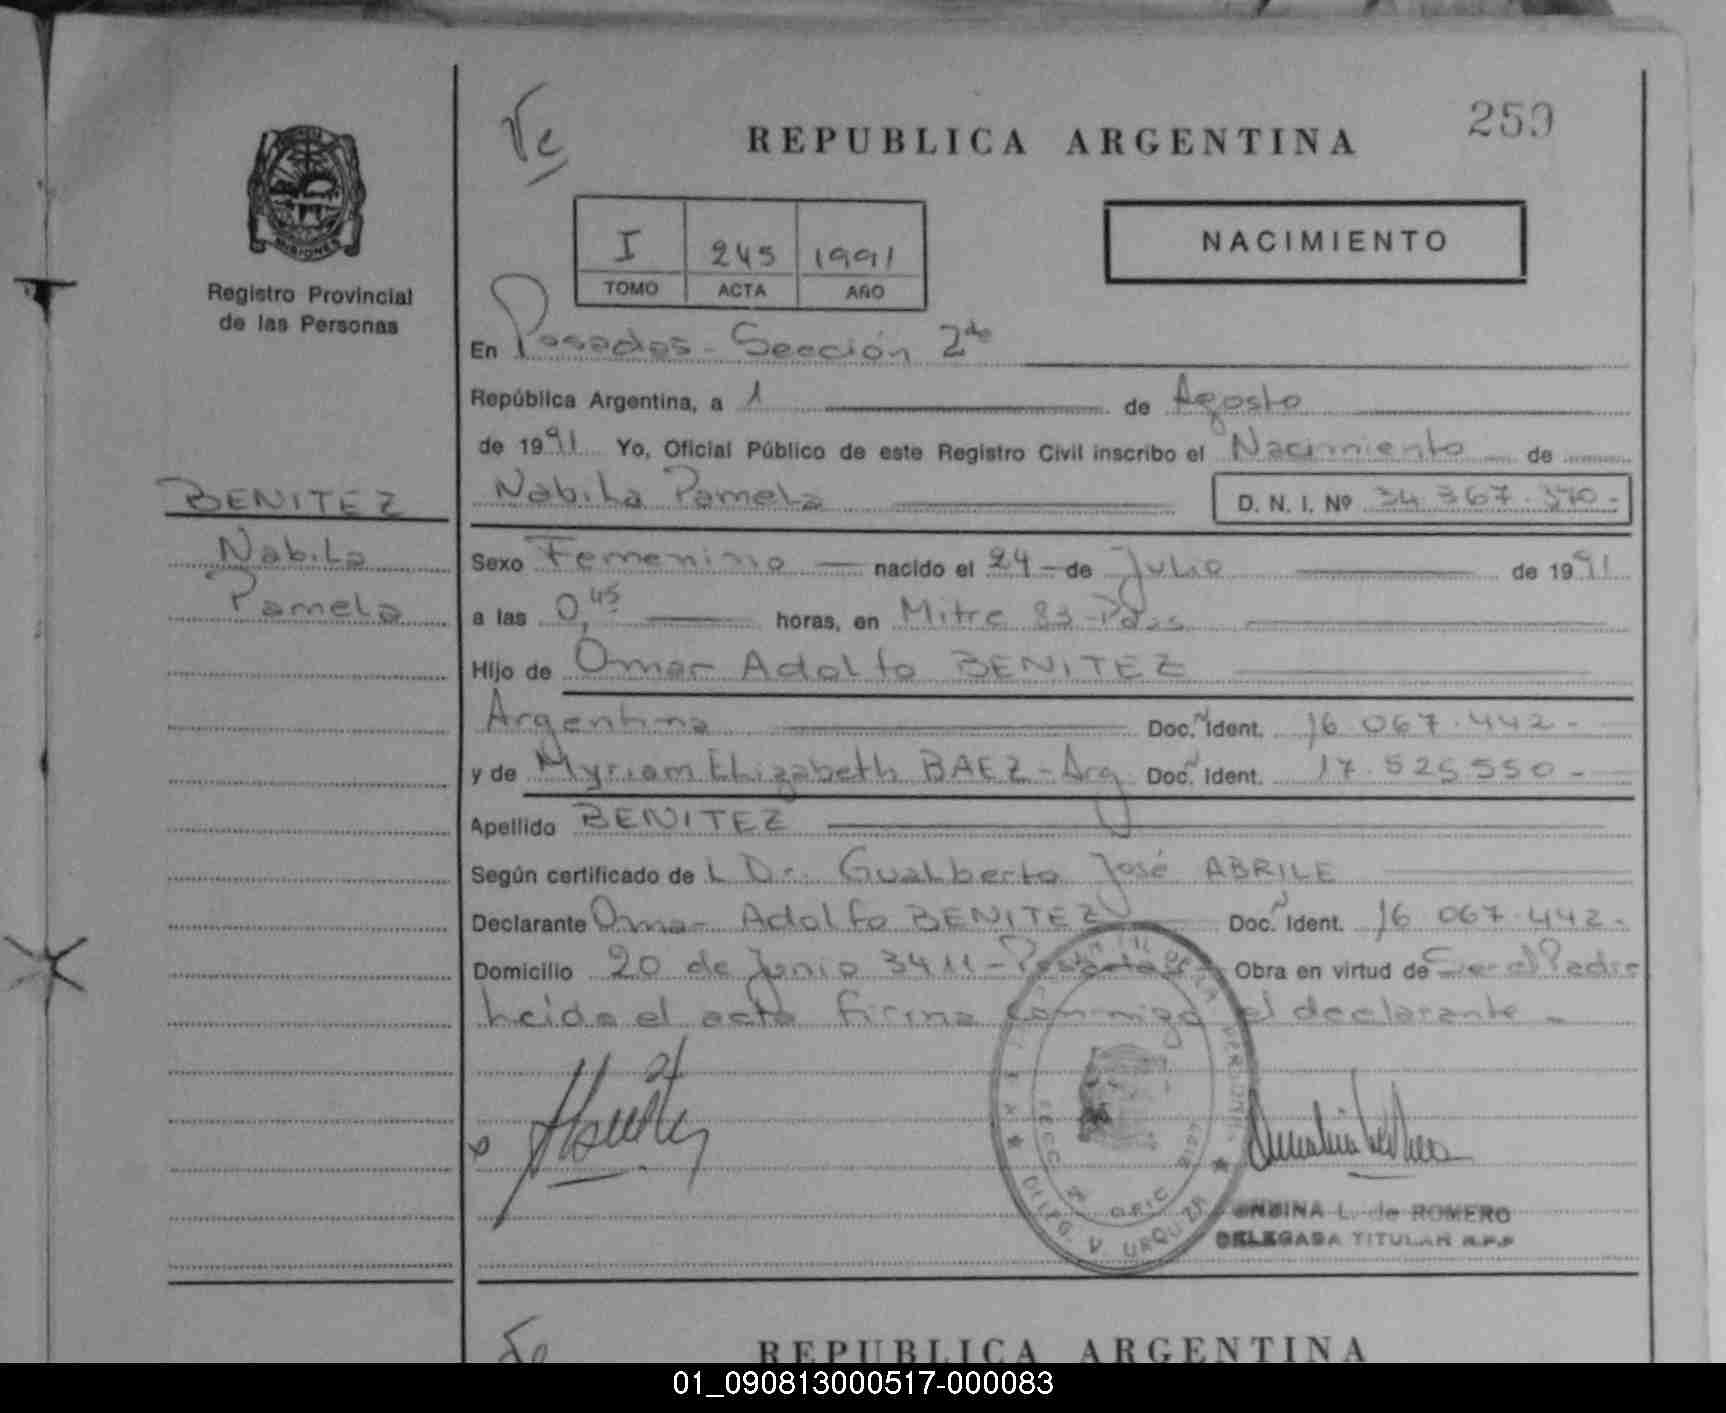 Ve
REPUBLICA ARGENTINA
259
MISIONES
Registro Provincial
de las Personas
I 245 1991
TOMO ACTA AÑO
NACIMIENTO
En Posadas - Sección 2da
República Argentina, a 1 de Agosto
de 1991 Yo, Oficial Público de este Registro Civil inscribo el Nacimiento de
Nabila Pamela D. N. I. Nº 34.367.370.-
BENITEZ
Nabila
Pamela
Sexo Femenino nacido el 24 de Julio de 1991
a las 0,45 horas, en Mitre 83 - Pdas
Hijo de Omar Adolfo BENITEZ
Argentina Doc. Ident. 16.067.442-
y de Myriam Elizabeth BAEZ - Arg Doc. Ident. 17.525.550-
Apellido BENITEZ
Según certificado del Dr. Gualberto José ABRILE
Declarante Omar Adolfo BENITEZ Doc. Ident. 16.067.442-
Domicilio 20 de Junio 3411 - Posadas Obra en virtud de Ser el Padre
Leida el acta firma conmigo el declarante -
DELEG. V. URQUIZA
L. de ROMERO
DELEGADA TITULAR R.P.P
REPUBLICA ARGENTINA
01_090813000517-000083